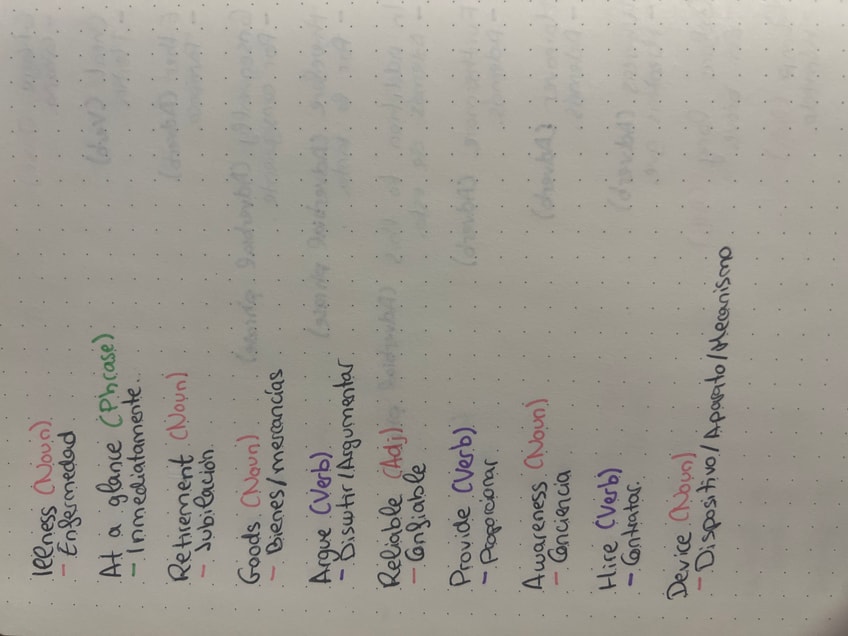 Illness (Noun)
- Enfermedad
At a glance (Phrase)
- Inmediatamente
Retirement (Noun)
- Jubilación
Goods (Noun)
- Bienes/mercancías
Argue (Verb)
- Discutir/Argumentar
Reliable (Adj)
- Confiable
Provide (Verb)
- Proporcionar
Awareness (Noun)
- Conciencia
Hire (Verb)
- Contratar
Device (Noun)
- Dispositivo/Aparato/Mecanismo